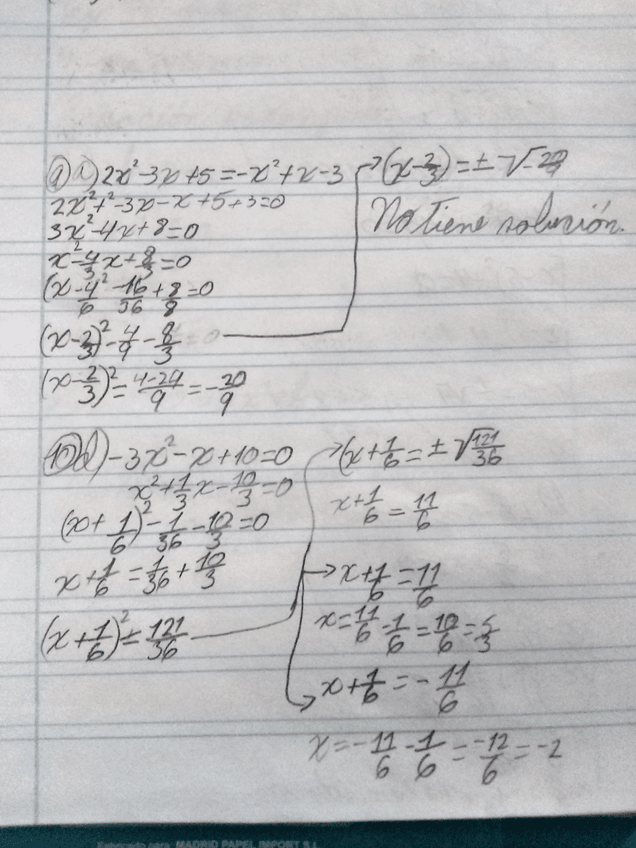 9) i) 2x²-3x+5=-x²+x-3
2x²+x²-3x-x+5+3=0
3x²-4x+8=0
x²-4/3x+8/3=0
(x-4/6)²-16/36+8/8=0
(x-2/3)²=4/9-8/3
(x-2/3)²=4-24/9=-20/9
(x-2/3)=±√-20/9
No tiene solución.
10) d) -3x²-x+10=0
x²+1/3x-10/3=0
(x+1/6)²-1/36-10/3=0
x+1/6=1/36+10/3
(x+1/6)²=121/36
(x+1/6=±√121/36
x+1/6=11/6
x+1/6=11/6
x=11/6-1/6=10/6=5/3
x+1/6=-11/6
x=-11/6-1/6=-12/6=-2
MADRID PAPEL IMPORT S.L